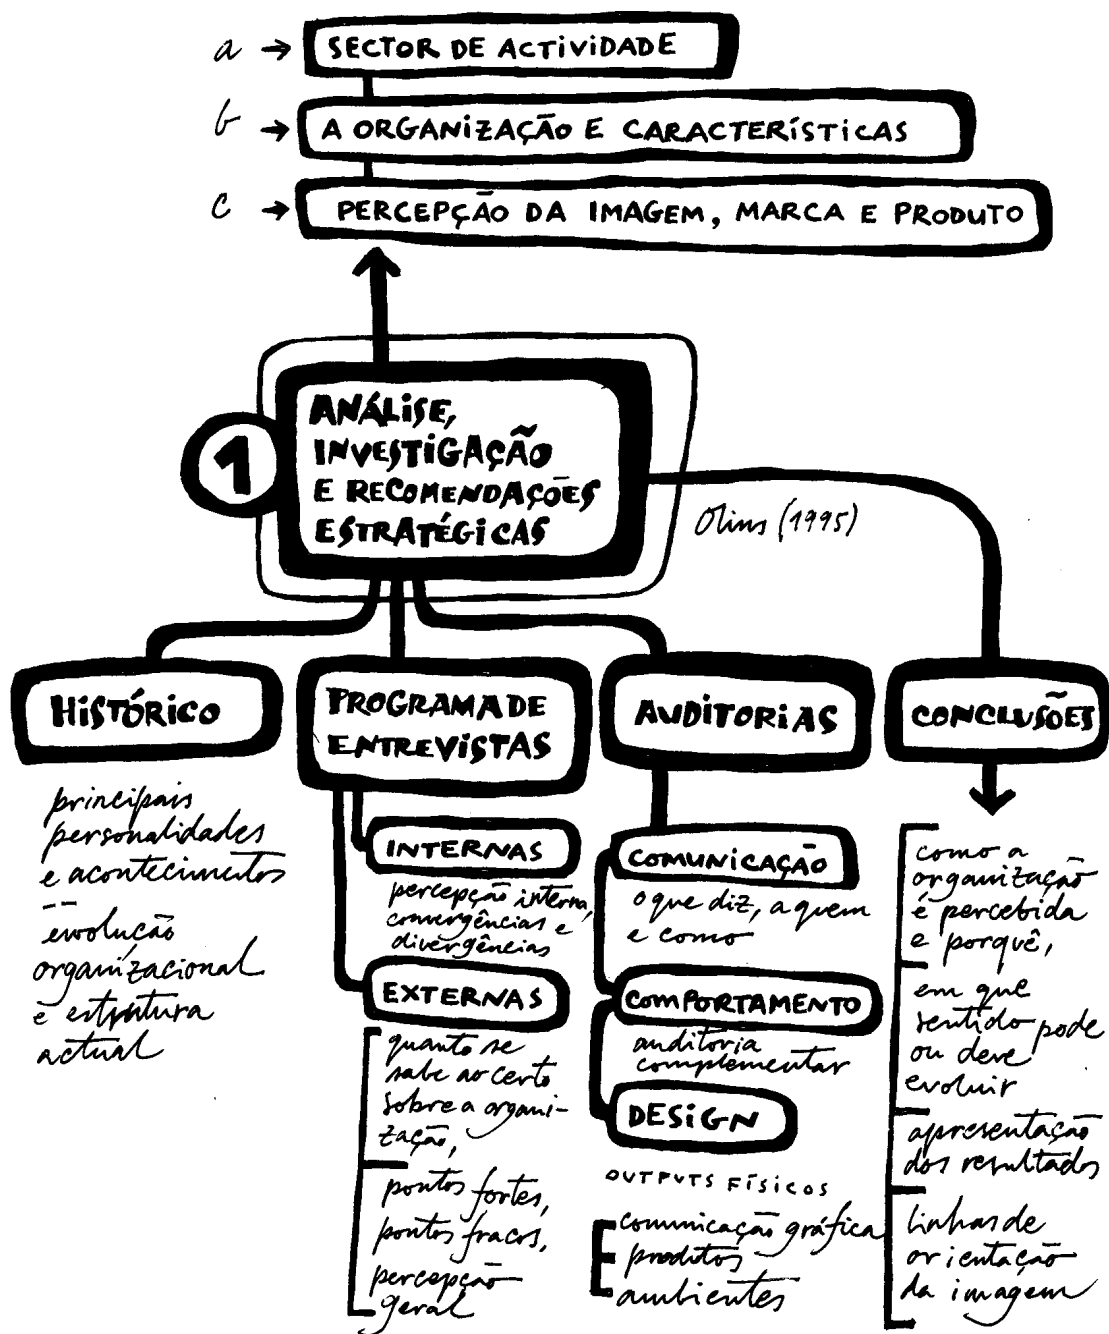 a → SECTOR DE ACTIVIDADE
b → A ORGANIZAÇÃO E CARACTERÍSTICAS
c → PERCEPÇÃO DA IMAGEM, MARCA E PRODUTO
1
ANÁLISE,
INVESTIGAÇÃO
E RECOMENDAÇÕES
ESTRATÉGICAS
Olins (1995)
HISTÓRICO
principais
personalidades
e acontecimentos
--
evolução
organizacional
e estrutura
actual
PROGRAMA DE
ENTREVISTAS
INTERNAS
percepção interna,
convergências e
divergências
EXTERNAS
quanto se
sabe ao certo
sobre a organi-
zação,
pontos fortes,
pontos fracos,
percepção
geral
AUDITORIAS
COMUNICAÇÃO
o que diz, a quem
e como
COMPORTAMENTO
auditoria
complementar
DESIGN
OUTPUTS FÍSICOS
comunicação gráfica
produtos
ambientes
CONCLUSÕES
como a
organização
é percebida
e porquê,
em que
sentido pode
ou deve
evoluir
apresentação
dos resultados
linhas de
orientação
da imagem